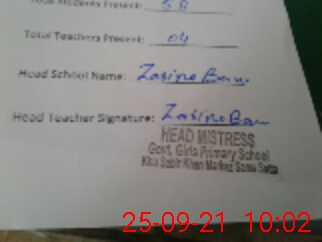 Total Students Present: 58
Total Teachers Present: 04
Head School Name:
Head Teacher Signature:
HEAD MISTRESS
Govt. Girls Primary School
Khu Sabir Khan Markez
25-09-21 10:02